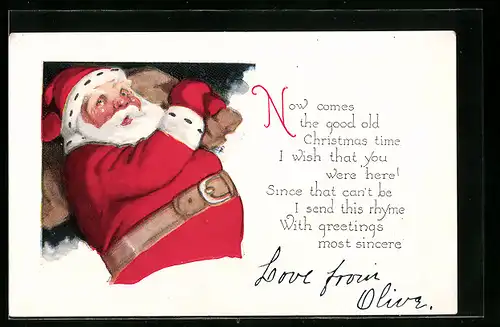 Now comes
the good old
Christmas time
I wish that you
were here!
Since that can't be
I send this rhyme
With greetings
most sincere
Love from
Olive.